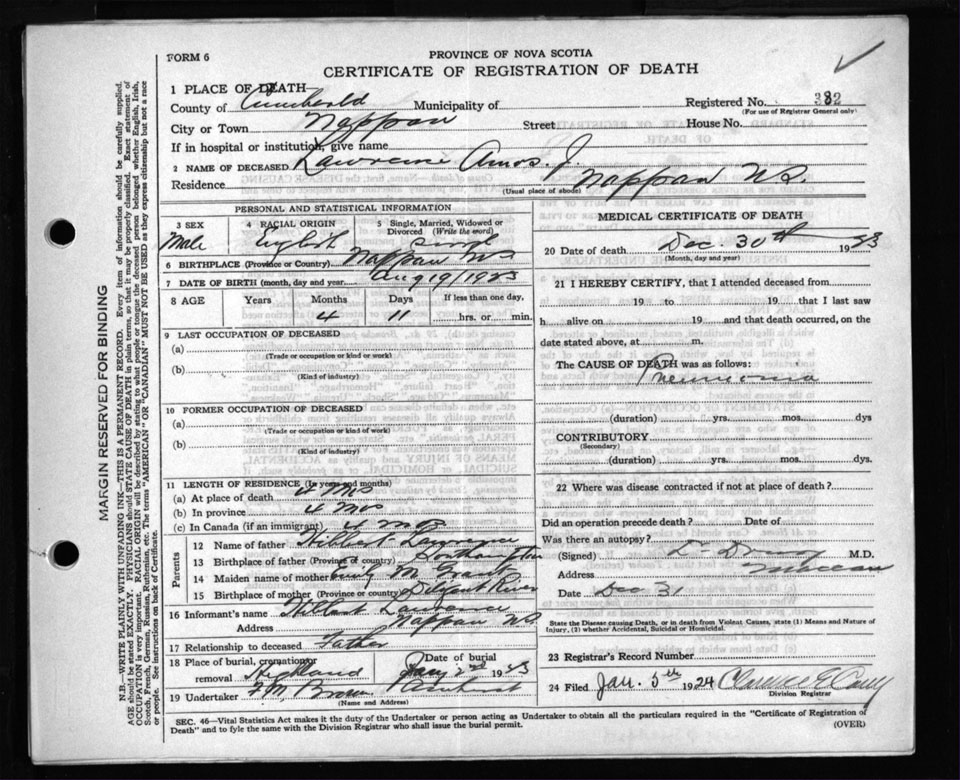 FORM 6
PROVINCE OF NOVA SCOTIA
CERTIFICATE OF REGISTRATION OF DEATH
1 PLACE OF DEATH
County of Cumberland Municipality of Registered No. 382
(For use of Registrar General only)
City or Town Nappan Street House No.
If in hospital or institution, give name
2 NAME OF DECEASED Lawrence Amos. J.
Residence Nappan NS.
(Usual place of abode)
PERSONAL AND STATISTICAL INFORMATION
3 SEX 4 RACIAL ORIGIN 5 Single, Married, Widowed or Divorced (Write the word)
Male English Single
6 BIRTHPLACE (Province or Country) Nappan NS
7 DATE OF BIRTH (month, day and year) Aug 19/1923
8 AGE Years Months Days If less than one day,
4 11 hrs. or min.
9 LAST OCCUPATION OF DECEASED
(a)
(Trade or occupation or kind or work)
(b)
(Kind of industry)
10 FORMER OCCUPATION OF DECEASED
(a)
(Trade or occupation or kind of work)
(b)
(Kind of industry)
11 LENGTH OF RESIDENCE (In years and months)
(a) At place of death 4 Mos
(b) In province 4 Mos
(c) In Canada (if an immigrant) 4 mos
Parents
12 Name of father Hilbert Lawrence
13 Birthplace of father (Province or country) Southampton
14 Maiden name of mother Emily M Grant
15 Birthplace of mother (Province or country) Diligent River
16 Informant's name Hilbert Lawrence
Address Nappan NS
17 Relationship to deceased Father
18 Place of burial, cremation or removal Highland Date of burial Jany 2nd 1923
19 Undertaker F. M. Brown Amherst
(Name and Address)
MEDICAL CERTIFICATE OF DEATH
20 Date of death Dec. 30th 1923
(Month, day and year)
21 I HEREBY CERTIFY, that I attended deceased from
19 to 19 that I last saw
h alive on 19 and that death occurred, on
date stated above, at m.
The CAUSE OF DEATH was as follows:
Pneumonia
(duration) yrs. mos. dys
CONTRIBUTORY
(Secondary)
(duration) yrs. mos. dys.
22 Where was disease contracted if not at place of death?
Did an operation precede death? Date of
Was there an autopsy?
(Signed) Dr M.D.
Address Maccan
Date Dec 31
State the Disease causing Death, or in death from Violent Causes, state (1) Means and Nature of
Injury, (2) whether Accidental, Suicidal or Homicidal.
23 Registrar's Record Number
24 Filed Jan. 5th 1924 Clarence E.
Division Registrar
SEC. 46—Vital Statistics Act makes it the duty of the Undertaker or person acting as Undertaker to obtain all the particulars required in the "Certificate of Registration of
Death" and to fyle the same with the Division Registrar who shall issue the burial permit. (OVER)
MARGIN RESERVED FOR BINDING
N.B.—WRITE PLAINLY WITH UNFADING INK—THIS IS A PERMANENT RECORD. Every item of information should be carefully supplied.
AGE should be stated EXACTLY. PHYSICIANS should STATE CAUSE OF DEATH in plain terms, so that it may be properly classified. Exact statement of
OCCUPATION is very important. RACIAL ORIGIN will be described by stating to what people or tongue the deceased person belonged whether English, Irish,
Scotch, French, German, Russian, Ruthenian, etc. The terms "AMERICAN" OR "CANADIAN" MUST NOT BE USED as they express citizenship but not a race
or people. See instructions on back of Certificate.